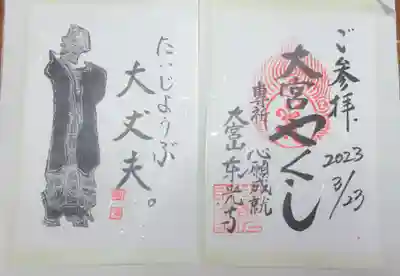 ご参拝
2023
3/23
大宮やくし
專祈
心願成就
大宮山東光寺
たいじょうぶ
大丈夫。